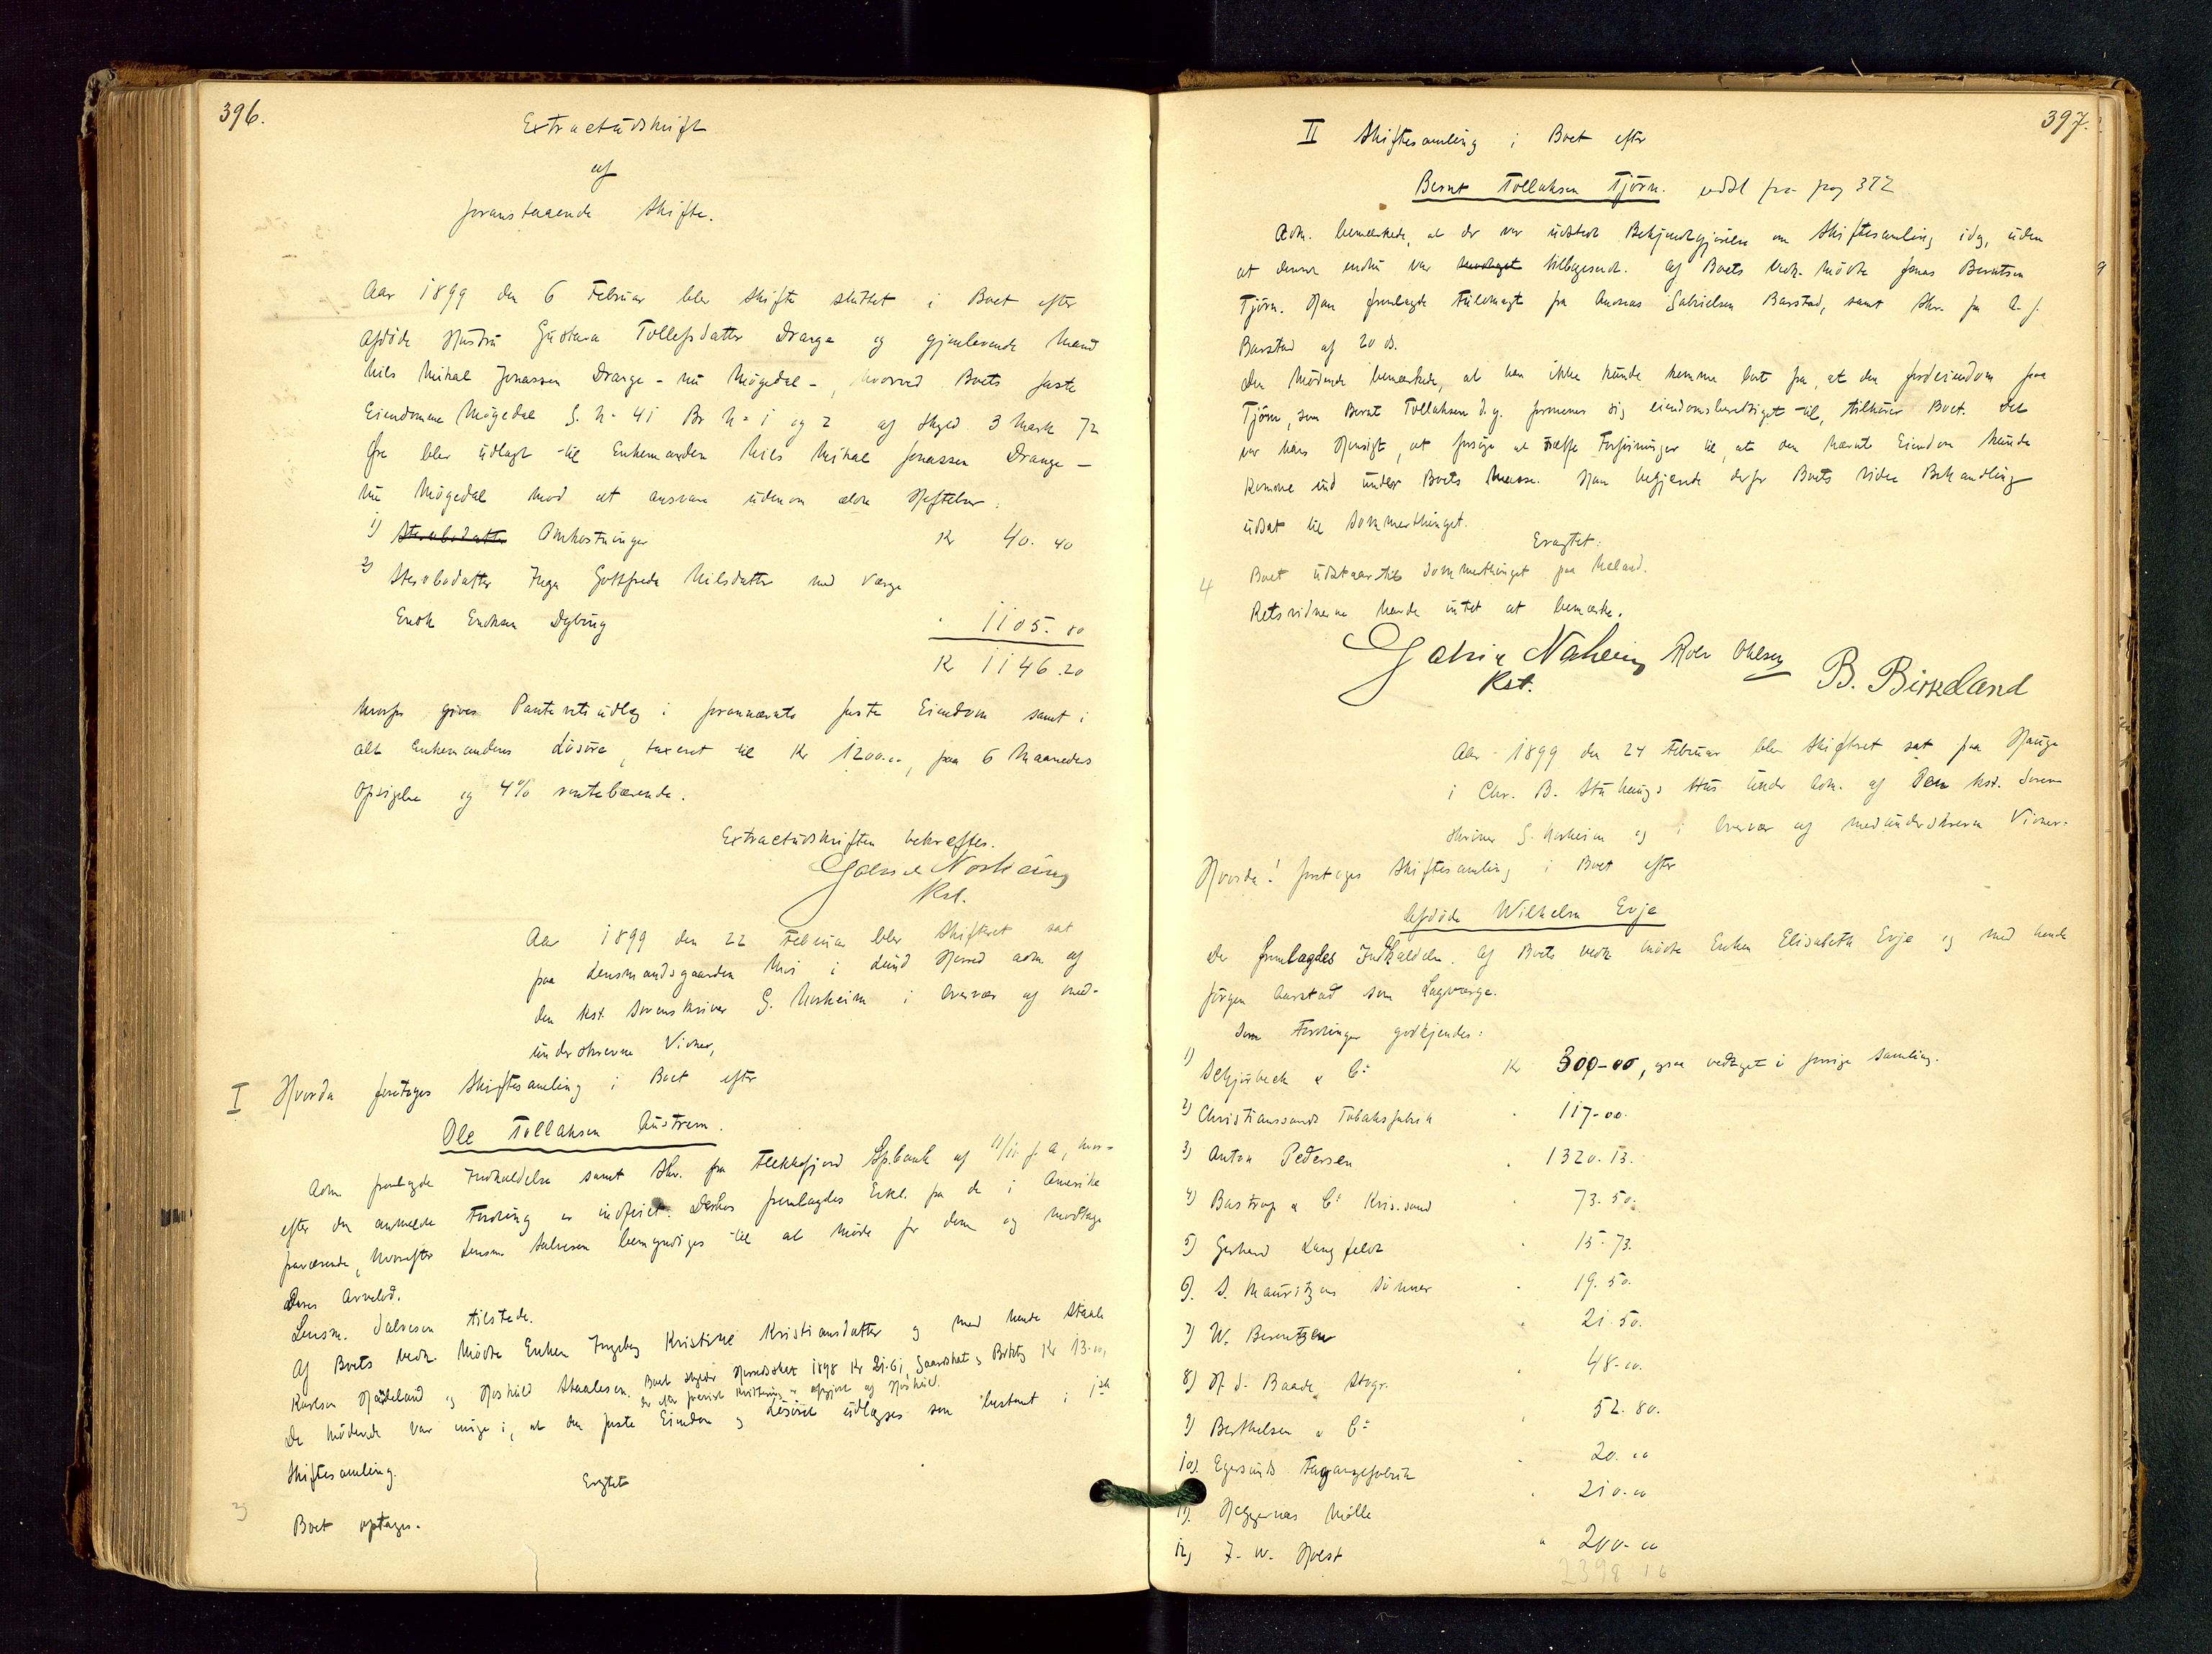 396.
Extractudskrift
af
foranstaaende Skifte.
Aar 1899 den 6 Februar blev Skifte sluttet i Boet efter
afdøde Hustru Gustava Tollefsdatter Drange og gjenlevende Mand
Nils Mikal Jonassen Drange - nu Mögedal -, hvorved Boets faste
Eiendomme Mögedal G. N- 41 Br N- 1 og 2 af Skyld 3 Mark 72
Øre blev udlagt til Enkemanden Nils Mikal Jonassen Drange -
nu Mögedal mod at ansvare udenom ældre Heftelser:
1) Omkostninger Kr 40. 40
2) Stervbodatter Inga Gottfreda Nilsdatter med Værge
Enok Enoksen Dybing " 1105. 80
Kr 1146.20
hvorfor gives Panteretsudlæg i forannævnte faste Eiendom samt i
alt Enkemandens Løsøre, taxeret til Kr 1200.00, paa 6 Maaneders
Opsigelse og 4% rentebærende.
Extractudskriften bekræftes.
Gabriel Norheim
Kst.
Aar 1899 den 22 Februar blev Skifteret sat
paa Lensmandsgaarden Moi i Lund Herred adm. af
den kst. Sorenskriver G. Norheim i Overvær af med-
underskrevne Vidner,
I Hvorda foretoges Skiftesamling i Boet efter
Ole Tollaksen Austrem.
Adm. fremlagde Indkaldelse samt Skr. fra Flekkefjord Sp.bank af 11/11 f. A, hvor-
efter den anmeldte Fordring er indfriet. Derhos fremlagdes Erkl. fra de i Amerika
fraværende, hvorefter Lensm. Salvesen bemyndiges til at møde for dem og modtage
Deres Arvelod.
Lensm. Salvesen tilstede.
Af Boets Vedk. mødte Enken Ingeborg Kristine Kristiansdatter og med hende Staale
Karlsen Hadeland og Hoskuld Staalesen. Boet skylder Herredsskat 1898 Kr 21.61, Kr 13.00,
De mødende var enige i, at den faste Eiendom og Løsöret udlægges som bestemt i 1ste
Skiftesamling.
Eragtet
Boet optages.
3)
397.
II Skiftesamling i Boet efter
Bernt Tollaksen Tjörn. udsat fra pag 372
Adm. bemærkede, at der var udstedt Bekjendtgjörelse om Skiftesamling idag, uden
at denne endnu var tilbagesendt. Af Boets Vedk. mödte Jonas Berntsen
Tjörn. Han fremlagde Fuldmagt fra Andreas Gabrielsen Barstad, samt Skr. fra A. J.
Barstad af 20 ds.
Den Mödende bemærkede, at han ikke kunde komme bort fra, at den Jordeiendom paa
Tjörn, som Bernt Tollaksen d.y. formener sig eiendomsberettiget til, tilhører Boet. Det
var hans Hensigt, at forsøge at træffe Forføininger til, at den nævnte Eiendom kunde
komme ind under Boets Masse. Han begjærede derfor Boets videre Behandling
udsat til Sommerthinget.
Eragtet:
4 Boet udstaar til Sommerthinget paa Meland.
Retsvidnerne havde intet at bemærke.
Gabriel Norheim Rolv Ohlsen B. Birkeland
Kst.
Aar 1899 den 24 Februar blev Skifteret sat paa Hauge
i Chr. B. Stuhaugs Hus under Adm. af den kst. Soren-
skriver G. Norheim og i Overvær af medunderskrevne Vidner.
Hvorda! foretoges Skiftesamling i Boet efter
Afdöde Wilhelm Evje
Der fremlagdes Indkaldelse. Af Boets Vedk. mödte Enken Elisabeth Evje og med hende
Jörgen Aarstad som Lagværge.
Som Fordringer godkjendes:
1) Schjörbeck & Co Kr 300-00, ogsaa vedtaget i forrige Samling.
2) Christianssands Tobaksfabrik " 117-00.
3) Anton Pedersen " 1320. 13.
4) Bastrup & Co Kris.sand " 73. 50.
5) Gerhard Langfeldt " 15-73.
6) S. Mauritzens Sönner " 19. 50.
7) W. Berentzen " 21. 50.
8) H. S. Baade, Stvgr. " 48-00.
9) Berthelsen & Co " 52. 80.
10) Egersunds Fayancefabrik " 20. 00
11) Heggernæs Mölle " 210-00
12) J. W. Holst " 200-00
2398 16